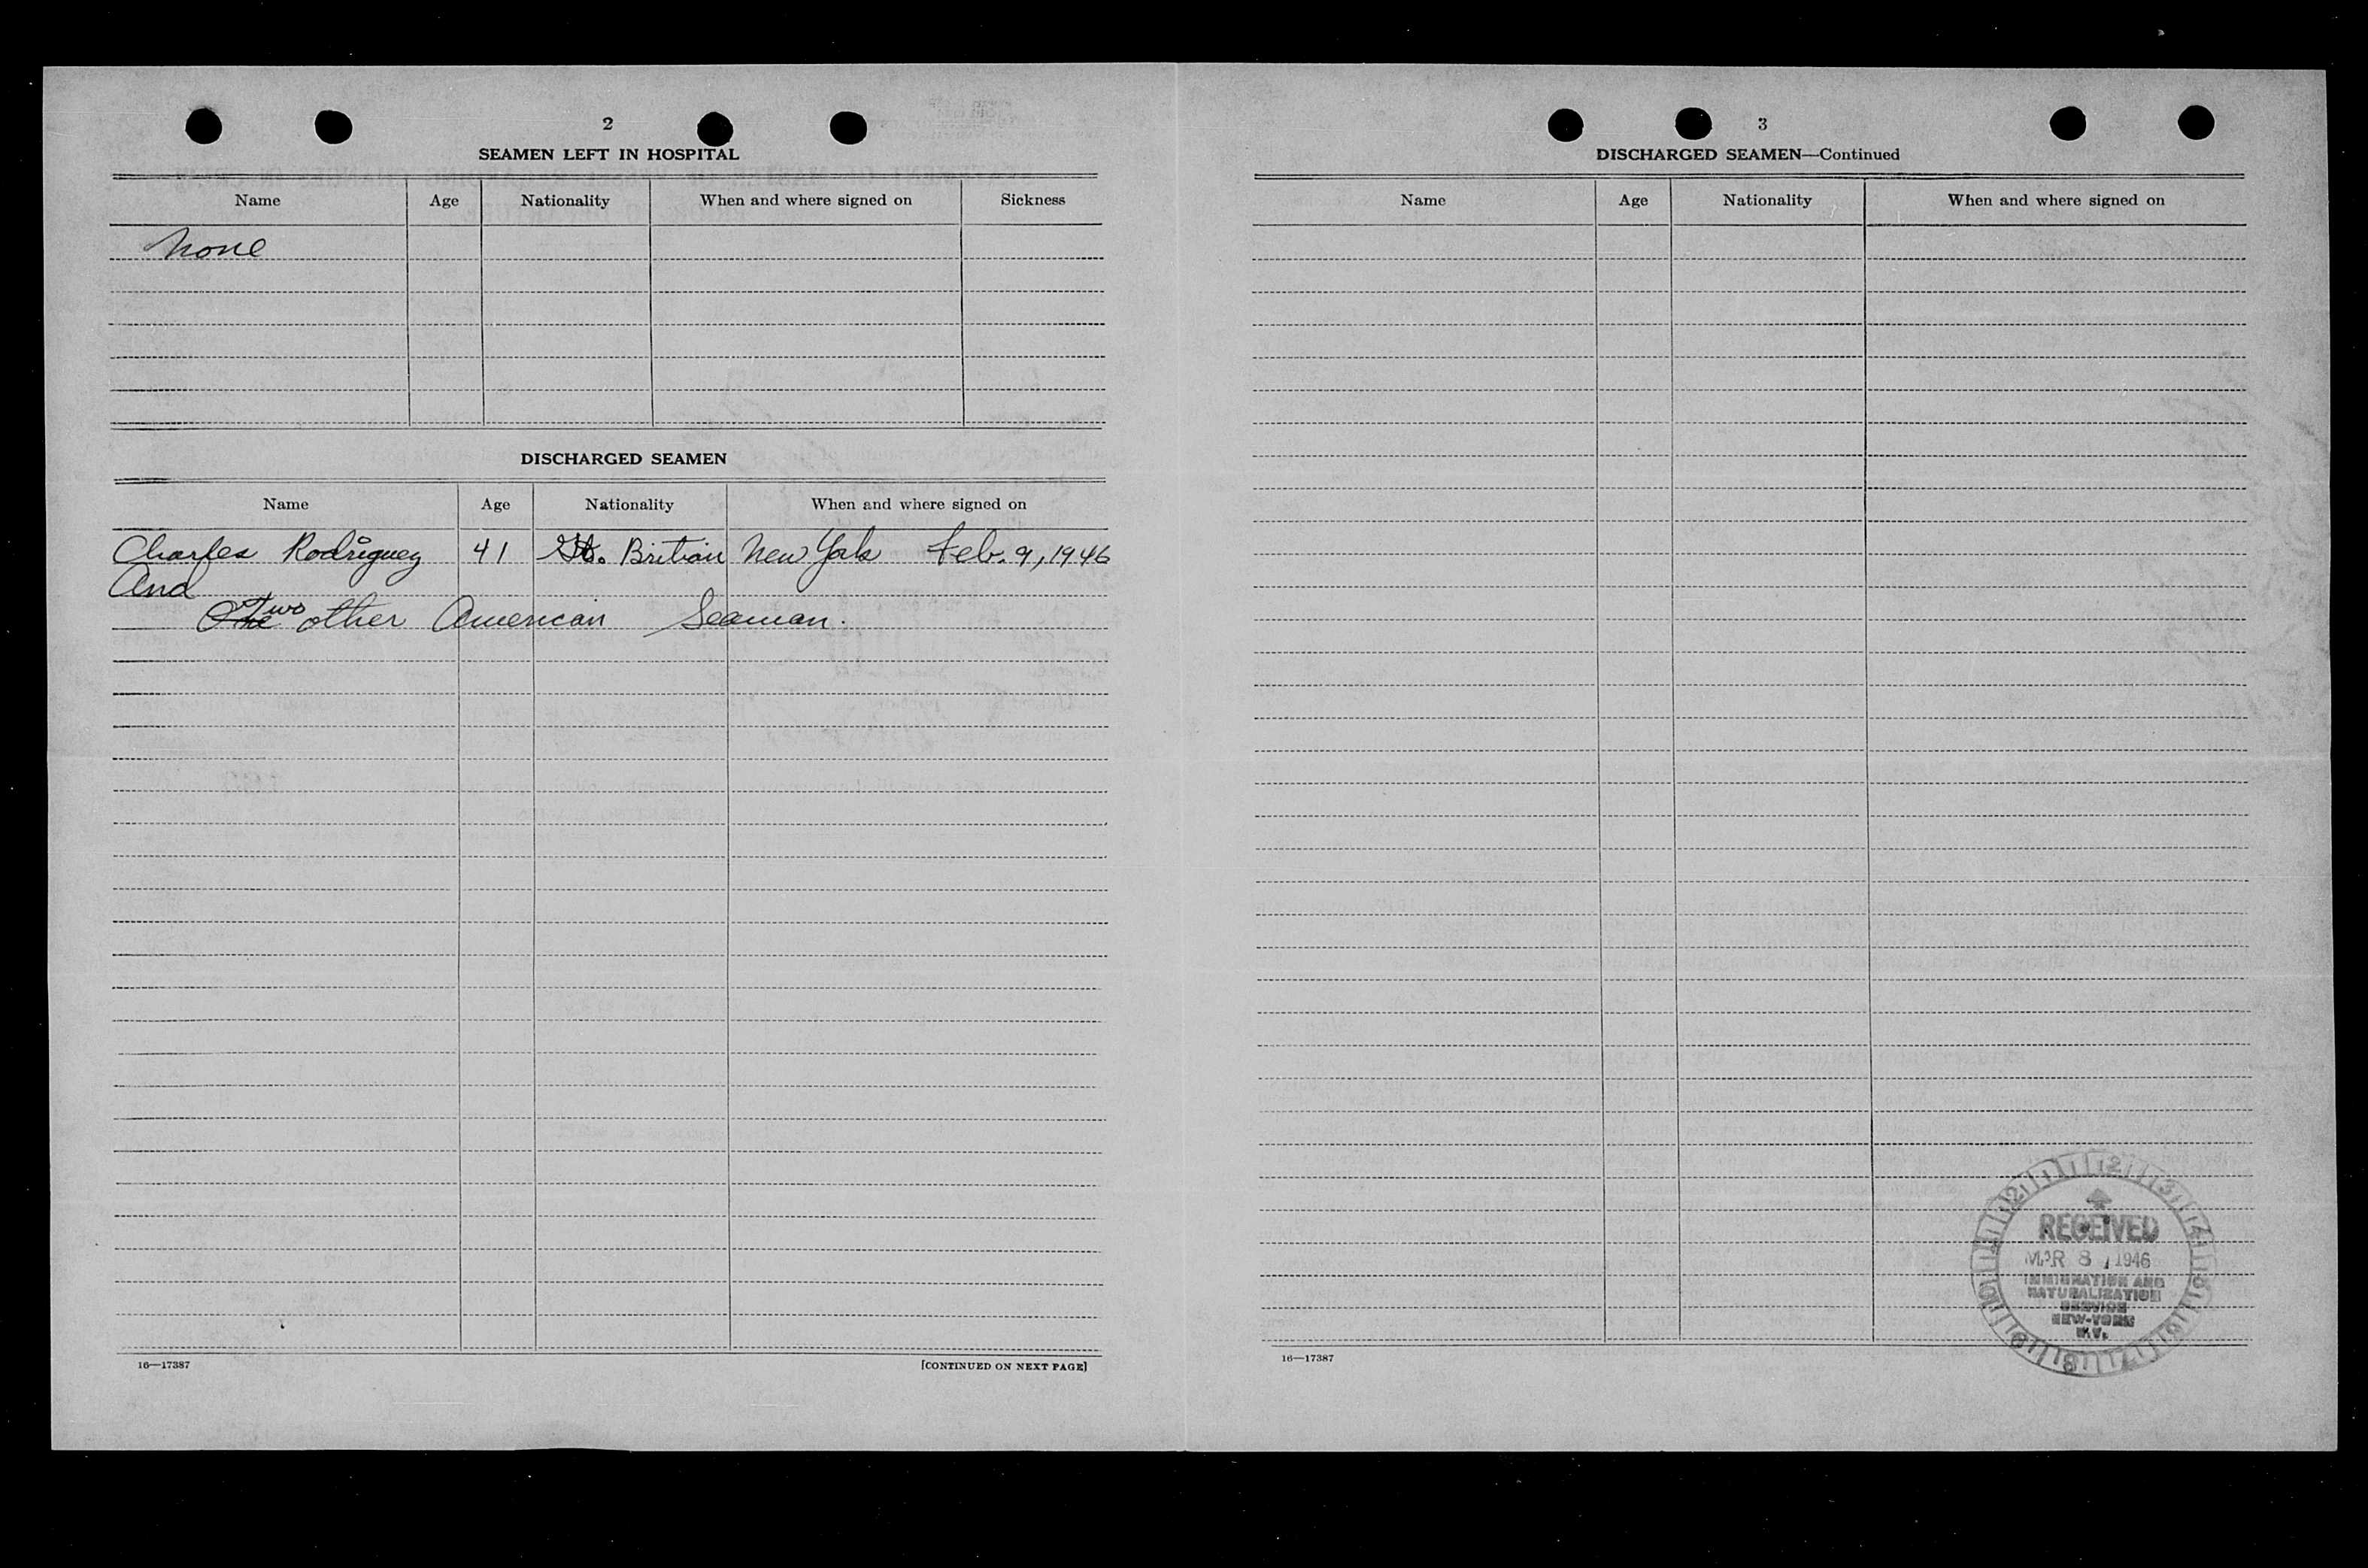 2
SEAMEN LEFT IN HOSPITAL
Name Age Nationality When and where signed on Sickness
None
DISCHARGED SEAMEN
Name Age Nationality When and where signed on
Charles Rodriguez 41 Gt. Britian New York Feb. 9, 1946
And
One Two other American Seaman.
16—17387 [CONTINUED ON NEXT PAGE]
3
DISCHARGED SEAMEN—Continued
Name Age Nationality When and where signed on
RECEIVED
MAR 8 1946
IMMIGRATION AND
NATURALIZATION
SERVICE
NEW-YORK
N.Y.
16—17387